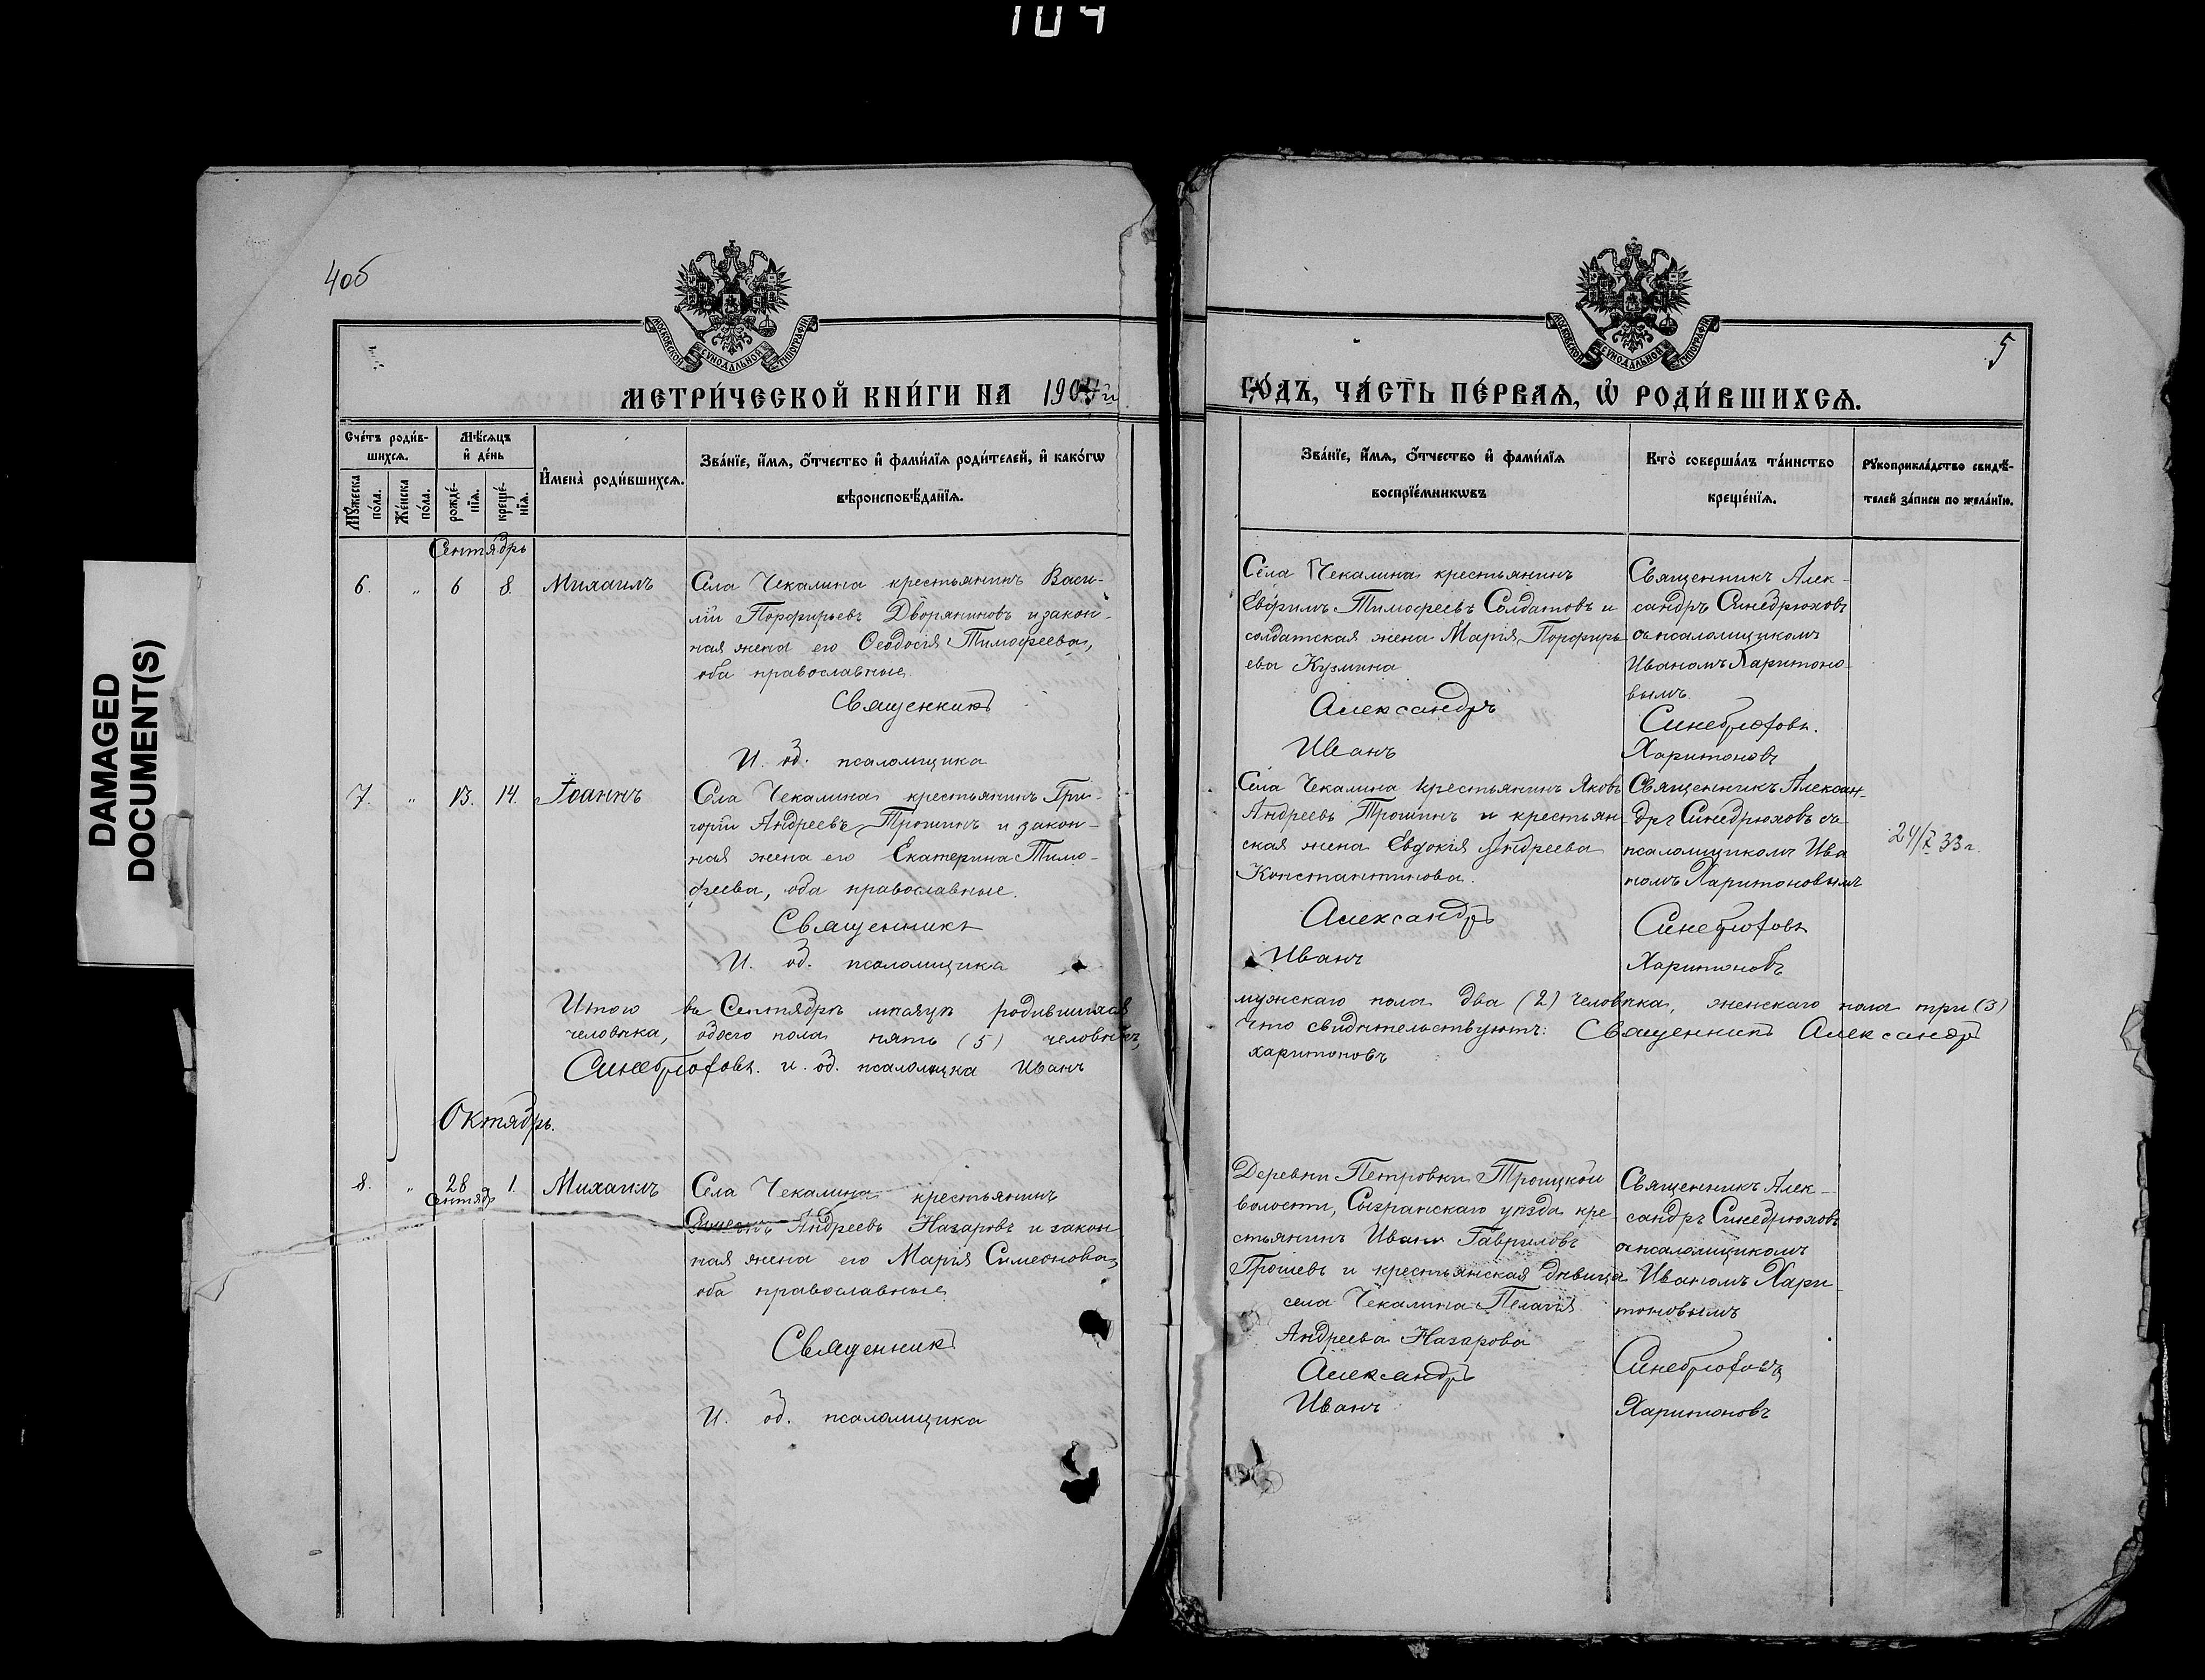 104
DAMAGED
DOCUMENT(S)
4об
5
МОСКОВСКОЙ СѴНОДАЛЬНОЙ ТИПОГРАФІИ
МОСКОВСКОЙ СѴНОДАЛЬНОЙ ТИПОГРАФІИ
МЕТРИ́ЧЕСКОЙ КНИ́ГИ НА 1904 г
ГО́ДЪ, ЧА́СТЬ ПЕ́РВАѦ, Ѡ҆ РОДИ́ВШИХСѦ.
Сче́тъ роди́в-
шихсѧ.
Мꙋ́жеска по́ла.
Же́нска по́ла.
Мѣ́сѧцъ
и҆ де́нь
рожде́-
нїѧ.
креще́-
нїѧ.
И҆мена̀ роди́вшихсѧ.
Зва́нїе, и҆́мѧ, ѻ҆́тчество и҆ фами́лїѧ роди́телей, и҆ како́гѡ
вѣроисповѣ́данїѧ.
Зва́нїе, и҆́мѧ, ѻ҆́тчество и҆ фами́лїѧ
воспрїе́мникѡвъ
Кто̀ соверша́лъ та́инство
креще́нїѧ.
Рꙋкоприкла́дство свидѣ́-
телей за́писи по жела́нїю.
Сентябрь
6. „ 6 8. Михаилъ
Села Чекалина крестьянинъ Васи-
лій Порфирьевъ Дворяниновъ и закон-
ная жена его Ѳеодосія Тимофеева,
оба православные.
Священникъ
И. об. псаломщика
Села Чекалина крестьянинъ
Евфимъ Тимофеевъ Солдатовъ и
солдатская жена Марія Порфирь-
ева Кузмина
Александръ
Иванъ
Священникъ Алек-
сандръ Синебрюховъ
съ псаломщикомъ
Иваномъ Харитоно-
вымъ.
Синебрюховъ.
Харитоновъ
7. „ 13. 14. Іоаннъ
Села Чекалина крестьянинъ Гри-
горій Андреевъ Трошинъ и закон-
ная жена его Екатерина Тимо-
феева, оба православные.
Священникъ
И. об. псаломщика
Села Чекалина крестьянинъ Яковъ
Андреевъ Трошинъ и крестьян-
ская жена Евдокія Андреева
Константинова.
Александръ
Иванъ
Священникъ Алексан-
дръ Синебрюховъ съ
псаломщикомъ Ива
номъ Харитоновымъ
Синебрюховъ
Харитоновъ
Итого въ Сентябрѣ мѣсяцѣ родившихся
мужскаго пола два (2) человѣка, женскаго пола три (3)
человѣка, обоего пола пять (5) человѣкъ,
что свидѣтельствуютъ: Священникъ Александръ
Синебрюховъ. и. об. псаломщика Иванъ
Харитоновъ
Октябрь.
8. „ 28 1. Михаилъ
Сентяб
Села Чекалина крестьянинъ
Андреевъ Назаровъ и закон
ная жена его Марія Симеонова,
оба православные
Священникъ
И. об. псаломщика
Деревни Петровки Троицкой
волости, Сызранскаго уѣзда кре-
стьянинъ Иванъ Гавриловъ
и крестьянская дѣвица
села Чекалина Пелагія
Андреева Назарова
Александръ
Иванъ
Священникъ Алек-
сандръ Синебрюховъ
съ псаломщикомъ
Иваномъ Хари-
тоновымъ
Синебрюховъ
Харитоновъ